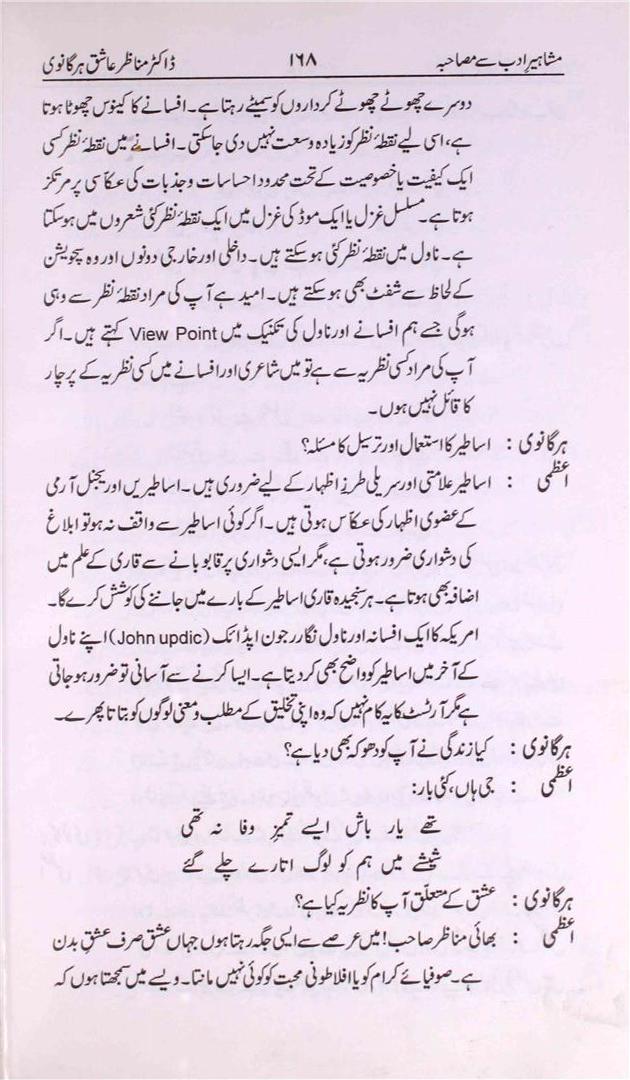 مشاہیرِ ادب سے مصاحبہ ۱۶۸ ڈاکٹر مناظر عاشق ہرگانوی
دوسرے چھوٹے چھوٹے کرداروں کو سمیٹے رہتا ہے۔ افسانے کا کینوس چھوٹا ہوتا
ہے، اسی لیے نقطۂ نظر کو زیادہ وسعت نہیں دی جاسکتی۔ افسانے میں نقطۂ نظر کسی
ایک کیفیت یا خصوصیت کے تحت محدود احساسات و جذبات کی عکاسی پر مرتکز
ہوتا ہے۔ مسلسل غزل یا ایک موڈ کی غزل میں ایک نقطۂ نظر کئی شعروں میں ہوسکتا
ہے۔ ناول میں نقطۂ نظر کئی ہوسکتے ہیں۔ داخلی اور خارجی دونوں اور وہ سچویشن
کے لحاظ سے شفٹ بھی ہوسکتے ہیں۔ امید ہے آپ کی مراد نقطۂ نظر سے وہی
ہوگی جسے ہم افسانے اور ناول کی تکنیک میں View Point کہتے ہیں۔ اگر
آپ کی مراد کسی نظریہ سے ہے تو میں شاعری اور افسانے میں کسی نظریہ کے پرچار
کا قائل نہیں ہوں۔
ہرگانوی : اساطیر کا استعمال اور ترسیل کا مسئلہ؟
اعظمی : اساطیر علامتی اور سریلی طرزِ اظہار کے لیے ضروری ہیں۔ اساطیریں اوریجنل آرمی
کے عضوی اظہار کی عکاس ہوتی ہیں۔ اگر کوئی اساطیر سے واقف نہ ہو تو ابلاغ
کی دشواری ضرور ہوتی ہے، مگر ایسی دشواری پر قابو پانے سے قاری کے علم میں
اضافہ بھی ہوتا ہے۔ ہر سنجیدہ قاری اساطیر کے بارے میں جاننے کی کوشش کرے گا۔
امریکہ کا ایک افسانہ اور ناول نگار جون اپڈائک (John updic) اپنے ناول
کے آخر میں اساطیر کو واضح بھی کردیتا ہے۔ ایسا کرنے سے آسانی تو ضرور ہوجاتی
ہے مگر آرٹسٹ کا یہ کام نہیں کہ وہ اپنی تخلیق کے مطلب و معنی لوگوں کو بتاتا پھرے۔
ہرگانوی : کیا زندگی نے آپ کو دھوکہ بھی دیا ہے؟
اعظمی : جی ہاں، کئی بار:
تھے یار باش ایسے تمیزِ وفا نہ تھی
شیشے میں ہم کو لوگ اتارے چلے گئے
ہرگانوی : عشق کے متعلق آپ کا نظریہ کیا ہے؟
اعظمی : بھائی مناظر صاحب! میں عرصے سے ایسی جگہ رہتا ہوں جہاں عشق صرف عشقِ بدن
ہے۔ صوفیائے کرام کو یا افلاطونی محبت کو کوئی نہیں مانتا۔ ویسے میں سمجھتا ہوں کہ